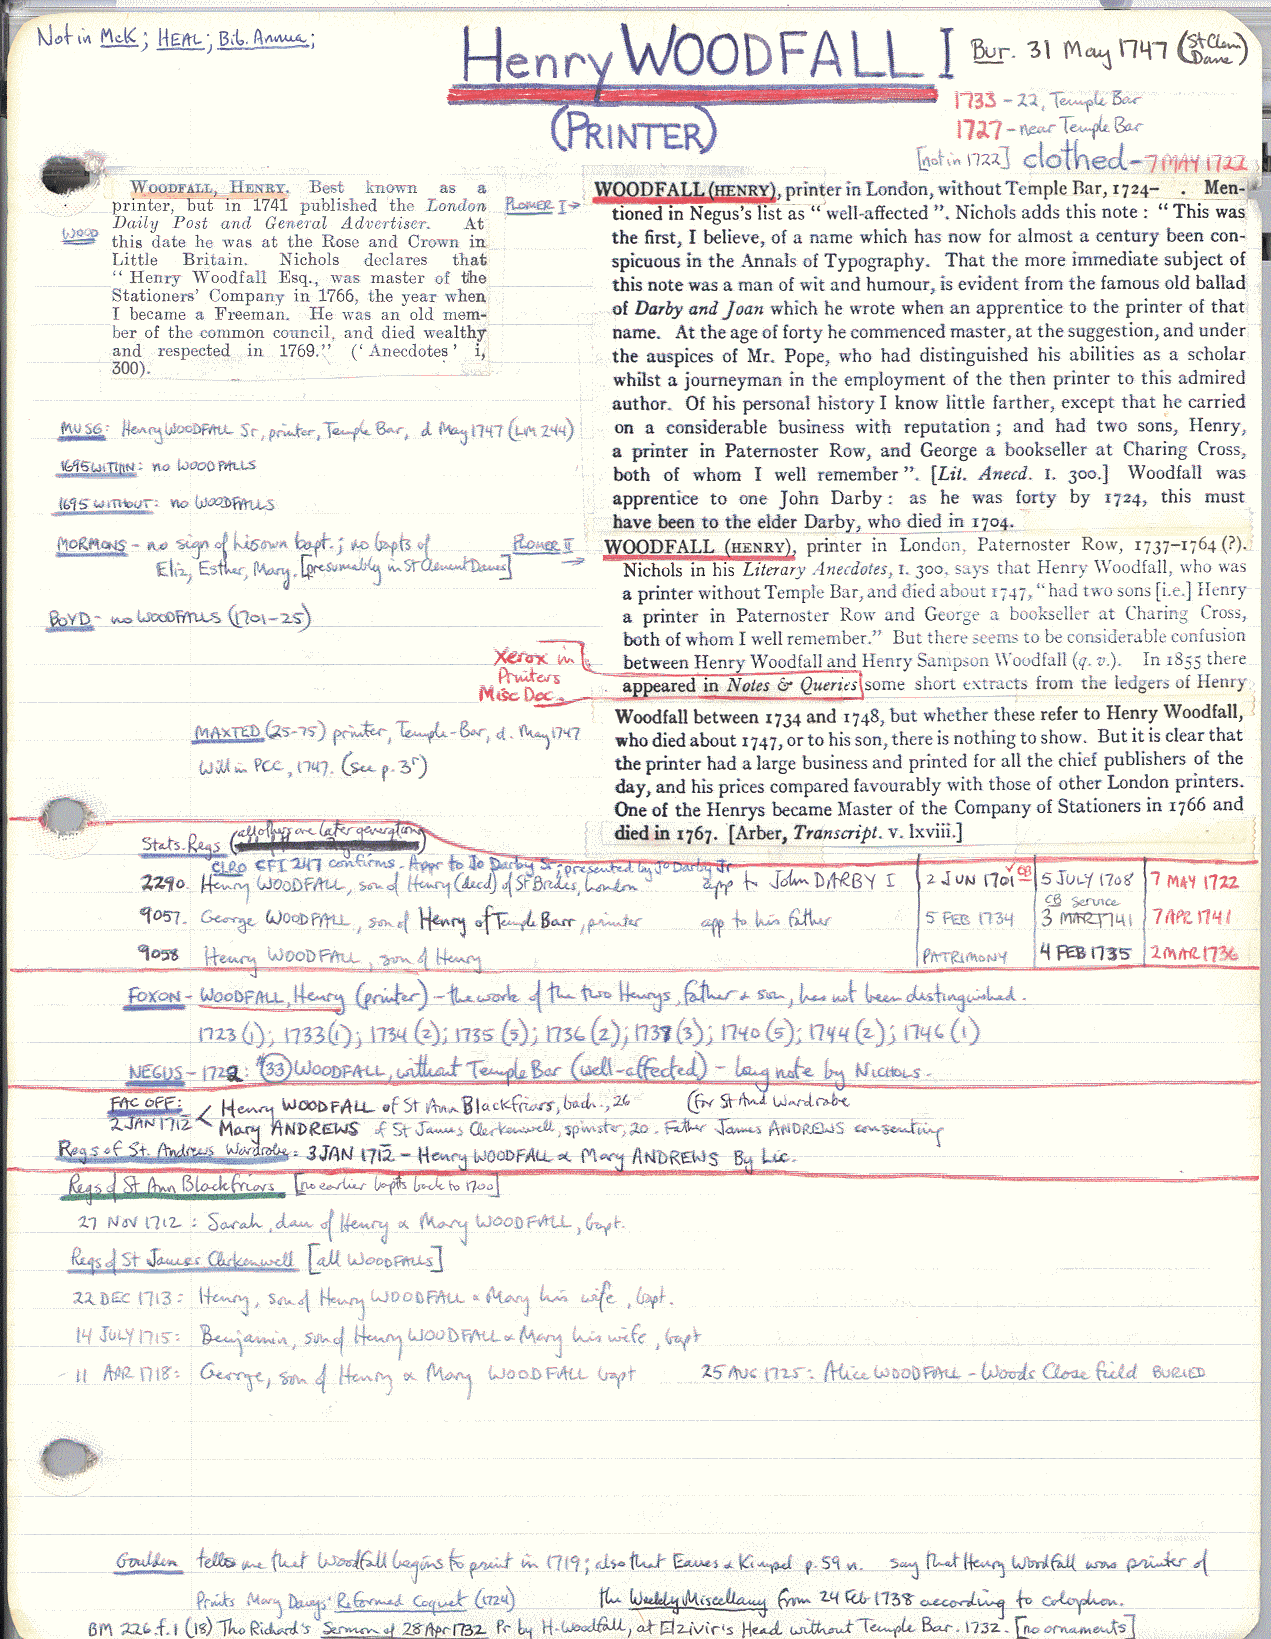 Not in McK; HEAL; Bib. Annua;
Henry WOODFALL I
(PRINTER)
Bur. 31 May 1747 (St Clem Dane)
1733 - 22, Temple Bar
1727 - near Temple Bar
[not in 1722] clothed - 7 MAY 1722
WOOD
WOODFALL, HENRY. Best known as a
printer, but in 1741 published the London
Daily Post and General Advertiser. At
this date he was at the Rose and Crown in
Little Britain. Nichols declares that
“ Henry Woodfall Esq., was master of the
Stationers’ Company in 1766, the year when
I became a Freeman. He was an old mem-
ber of the common council, and died wealthy
and respected in 1769.” (‘ Anecdotes ’ i,
300).
PLOMER I →
WOODFALL (HENRY), printer in London, without Temple Bar, 1724– . Men-
tioned in Negus’s list as “ well-affected ”. Nichols adds this note : “ This was
the first, I believe, of a name which has now for almost a century been con-
spicuous in the Annals of Typography. That the more immediate subject of
this note was a man of wit and humour, is evident from the famous old ballad
of Darby and Joan which he wrote when an apprentice to the printer of that
name. At the age of forty he commenced master, at the suggestion, and under
the auspices of Mr. Pope, who had distinguished his abilities as a scholar
whilst a journeyman in the employment of the then printer to this admired
author. Of his personal history I know little farther, except that he carried
on a considerable business with reputation ; and had two sons, Henry,
a printer in Paternoster Row, and George a bookseller at Charing Cross,
both of whom I well remember ”. [Lit. Anecd. I. 300.] Woodfall was
apprentice to one John Darby : as he was forty by 1724, this must
have been to the elder Darby, who died in 1704.
MUSG: Henry WOODFALL Sr, printer, Temple Bar, d May 1747 (LM 244)
1695 WITHIN: no WOODFALLS
1695 WITHOUT: no WOODFALLS
MORMONS - no sign of his own bapt.; no bapts of
Eliz, Esther, Mary. [presumably in St Clement Danes]
BOYD - no WOODFALLS (1701-25)
PLOMER II →
WOODFALL (HENRY), printer in London, Paternoster Row, 1737–1764 (?).
Nichols in his Literary Anecdotes, I. 300, says that Henry Woodfall, who was
a printer without Temple Bar, and died about 1747, “ had two sons [i.e.] Henry
a printer in Paternoster Row and George a bookseller at Charing Cross,
both of whom I well remember.” But there seems to be considerable confusion
between Henry Woodfall and Henry Sampson Woodfall (q. v.). In 1855 there
appeared in Notes & Queries some short extracts from the ledgers of Henry
Woodfall between 1734 and 1748, but whether these refer to Henry Woodfall,
who died about 1747, or to his son, there is nothing to show. But it is clear that
the printer had a large business and printed for all the chief publishers of the
day, and his prices compared favourably with those of other London printers.
One of the Henrys became Master of the Company of Stationers in 1766 and
died in 1767. [Arber, Transcript. v. lxviii.]
Xerox in
Printers
Misc Doc.
MAXTED (25-75) printer, Temple-Bar, d. May 1747
Will in PCC, 1747. (see p. 3r)
Stats. Regs (all others are later generations)
CLRO CFI 247 confirms. Appr to Jo Darby Sr; presented by Jo Darby Jr
2290. Henry WOODFALL, son of Henry (decd) of St Brides, London app to John DARBY I 2 JUN 1701 ✓CB 5 JULY 1708 7 MAY 1722
CB Service
9057. George WOODFALL, son of Henry of Temple Barr, printer app to his father 5 FEB 1734 3 MAR 1741 7 APR 1741
9058 Henry WOODFALL, son of Henry PATRIMONY 4 FEB 1735 2 MAR 1736
FOXON - WOODFALL, Henry (printer) - the work of the two Henrys, father & son, has not been distinguished.
1723 (1); 1733 (1); 1734 (2); 1735 (5); 1736 (2); 1738 (3); 1740 (5); 1744 (2); 1746 (1)
NEGUS - 1722: #33 WOODFALL, without Temple Bar (well-affected) - long note by NICHOLS.
FAC OFF: Henry WOODFALL of St Ann Blackfriars, bach., 26 (for St And Wardrobe
2 JAN 1712 < Mary ANDREWS of St James Clerkenwell, spinster, 20. Father James ANDREWS consenting
Regs of St. Andrews Wardrobe: 3 JAN 1712 - Henry WOODFALL & Mary ANDREWS By Lic.
Regs of St Ann Blackfriars [no earlier bapts back to 1700]
27 NOV 1712 : Sarah, dau of Henry & Mary WOODFALL, bapt.
Regs of St James Clerkenwell [all WOODFALLS]
22 DEC 1713: Henry, son of Henry WOODFALL & Mary his wife, bapt.
14 JULY 1715: Benjamin, son of Henry WOODFALL & Mary his wife, bapt
- 11 APR 1718: George, son of Henry & Mary WOODFALL bapt 25 AUG 1725: Alice WOODFALL - Woods Close field BURIED
Goulden tells me that Woodfall begins to print in 1719; also that Eaves & Kimpel p. 59 n. say that Henry Woodfall was printer of
Prints Mary Davys' Reformed Coquet (1724) the Weekly Miscellany from 24 Feb 1738 according to colophon.
BM 226.f.1 (18) Tho Richard's Sermon of 28 Apr 1732 Pr by H. Woodfall, at Elzivir's Head without Temple Bar. 1732. [no ornaments]